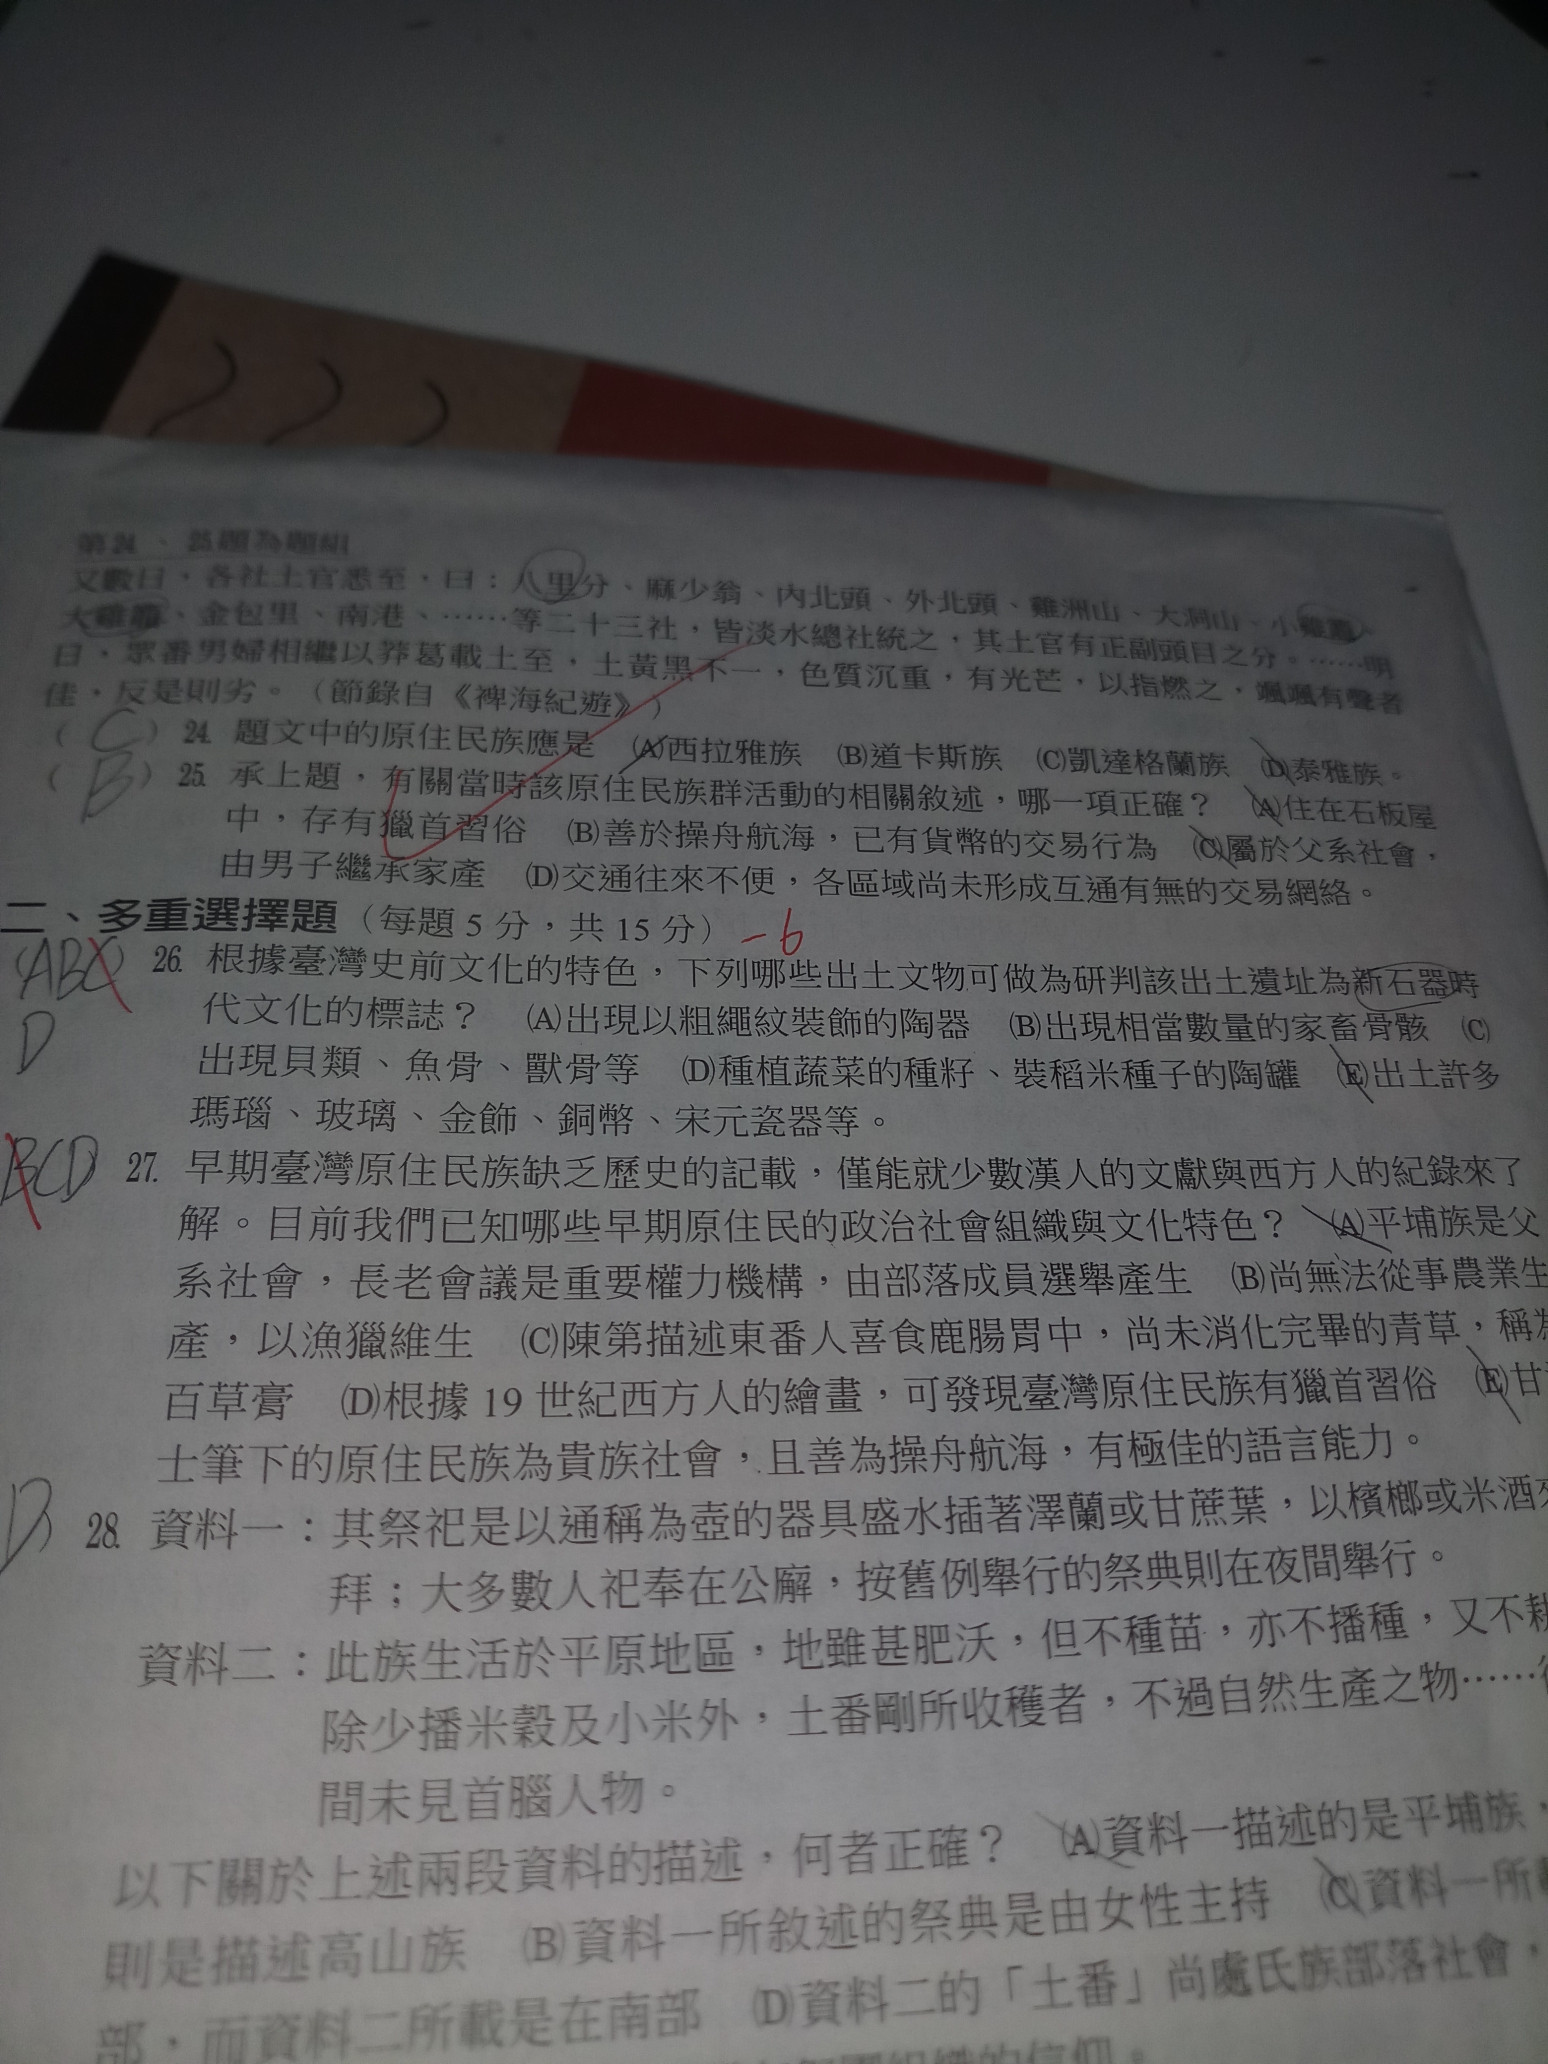 第24、25題為題組
又數日,各社土官悉至,曰:八里分、麻少翁、內北頭、外北頭、雞洲山、大洞山、小雞籠、
大雞籠、金包里、南港、……等二十三社,皆淡水總社統之,其土官有正副頭目之分。……明
日,眾番男婦相繼以莽葛載土至,土黃黑不一,色質沉重,有光芒,以指燃之,颯颯有聲者
佳,反是則劣。(節錄自《裨海紀遊》)
( C ) 24. 題文中的原住民族應是 (A)西拉雅族 (B)道卡斯族 (C)凱達格蘭族 (D)泰雅族。
( B ) 25. 承上題,有關當時該原住民族群活動的相關敘述,哪一項正確? (A)住在石板屋
中,存有獵首習俗 (B)善於操舟航海,已有貨幣的交易行為 (C)屬於父系社會,
由男子繼承家產 (D)交通往來不便,各區域尚未形成互通有無的交易網絡。
二、多重選擇題(每題 5 分,共 15 分) -6
(ABC) 26. 根據臺灣史前文化的特色,下列哪些出土文物可做為研判該出土遺址為新石器時
D 代文化的標誌? (A)出現以粗繩紋裝飾的陶器 (B)出現相當數量的家畜骨骸 (C)
出現貝類、魚骨、獸骨等 (D)種植蔬菜的種籽、裝稻米種子的陶罐 (E)出土許多
瑪瑙、玻璃、金飾、銅幣、宋元瓷器等。
BCD) 27. 早期臺灣原住民族缺乏歷史的記載,僅能就少數漢人的文獻與西方人的紀錄來了
解。目前我們已知哪些早期原住民的政治社會組織與文化特色? (A)平埔族是父
系社會,長老會議是重要權力機構,由部落成員選舉產生 (B)尚無法從事農業生
產,以漁獵維生 (C)陳第描述東番人喜食鹿腸胃中,尚未消化完畢的青草,稱為
百草膏 (D)根據 19 世紀西方人的繪畫,可發現臺灣原住民族有獵首習俗 (E)甘
士筆下的原住民族為貴族社會,且善為操舟航海,有極佳的語言能力。
D) 28. 資料一:其祭祀是以通稱為壺的器具盛水插著澤蘭或甘蔗葉,以檳榔或米酒
拜;大多數人祀奉在公廨,按舊例舉行的祭典則在夜間舉行。
資料二:此族生活於平原地區,地雖甚肥沃,但不種苗,亦不播種,又不耕
除少播米穀及小米外,土番剛所收穫者,不過自然生產之物……
間未見首腦人物。
以下關於上述兩段資料的描述,何者正確? (A)資料一描述的是平埔族,
則是描述高山族 (B)資料一所敘述的祭典是由女性主持 (C)資料一所
部,而資料二所載是在南部 (D)資料二的「土番」尚處氏族部落社會,
組織的信仰。